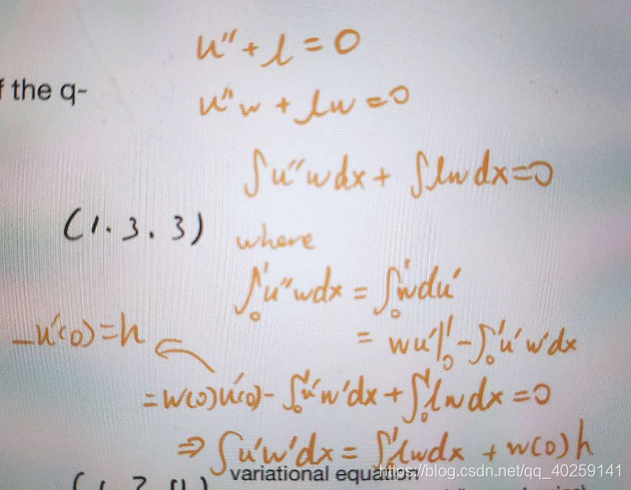 u'' + l = 0
f the q-
u''w + lw = 0
∫u''wdx + ∫lwdx=0
(1.3.3)
where
∫₀¹u''wdx = ∫₀¹wdu'
= wu'|₀¹ - ∫₀¹u'w'dx
-u'(0)=h
=w(0)u'(0)- ∫₀¹u'w'dx + ∫₀¹lwdx =0
⇒ ∫u'w'dx = ∫₀¹lwdx + w(0)h
variational equation
https://blog.csdn.net/qq_40259141